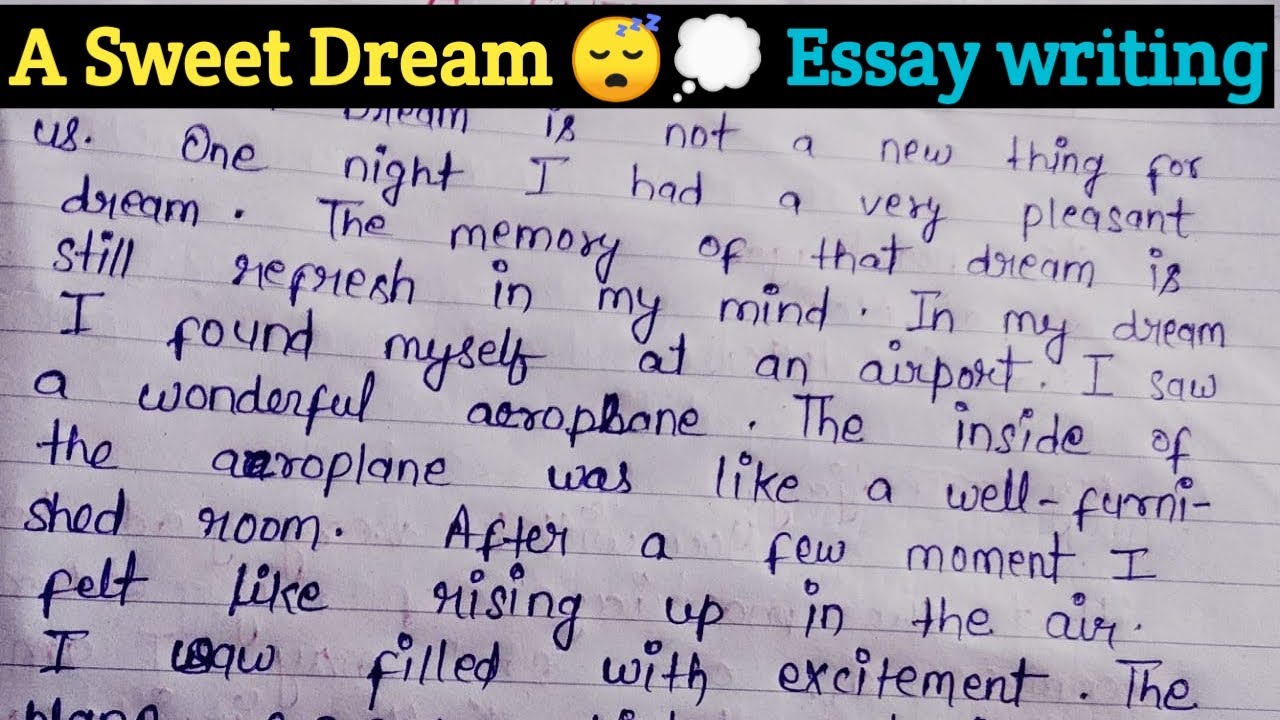 A Sweet Dream 😴💭 Essay writing
Dream is not a new thing for
us. One night I had a very pleasant
dream. The memory of that dream is
still refresh in my mind. In my dream
I found myself at an airport. I saw
a wonderful aeroplane. The inside of
the aeroplane was like a well-furni-
shed room. After a few moment I
felt like rising up in the air.
I saw filled with excitement. The
plane